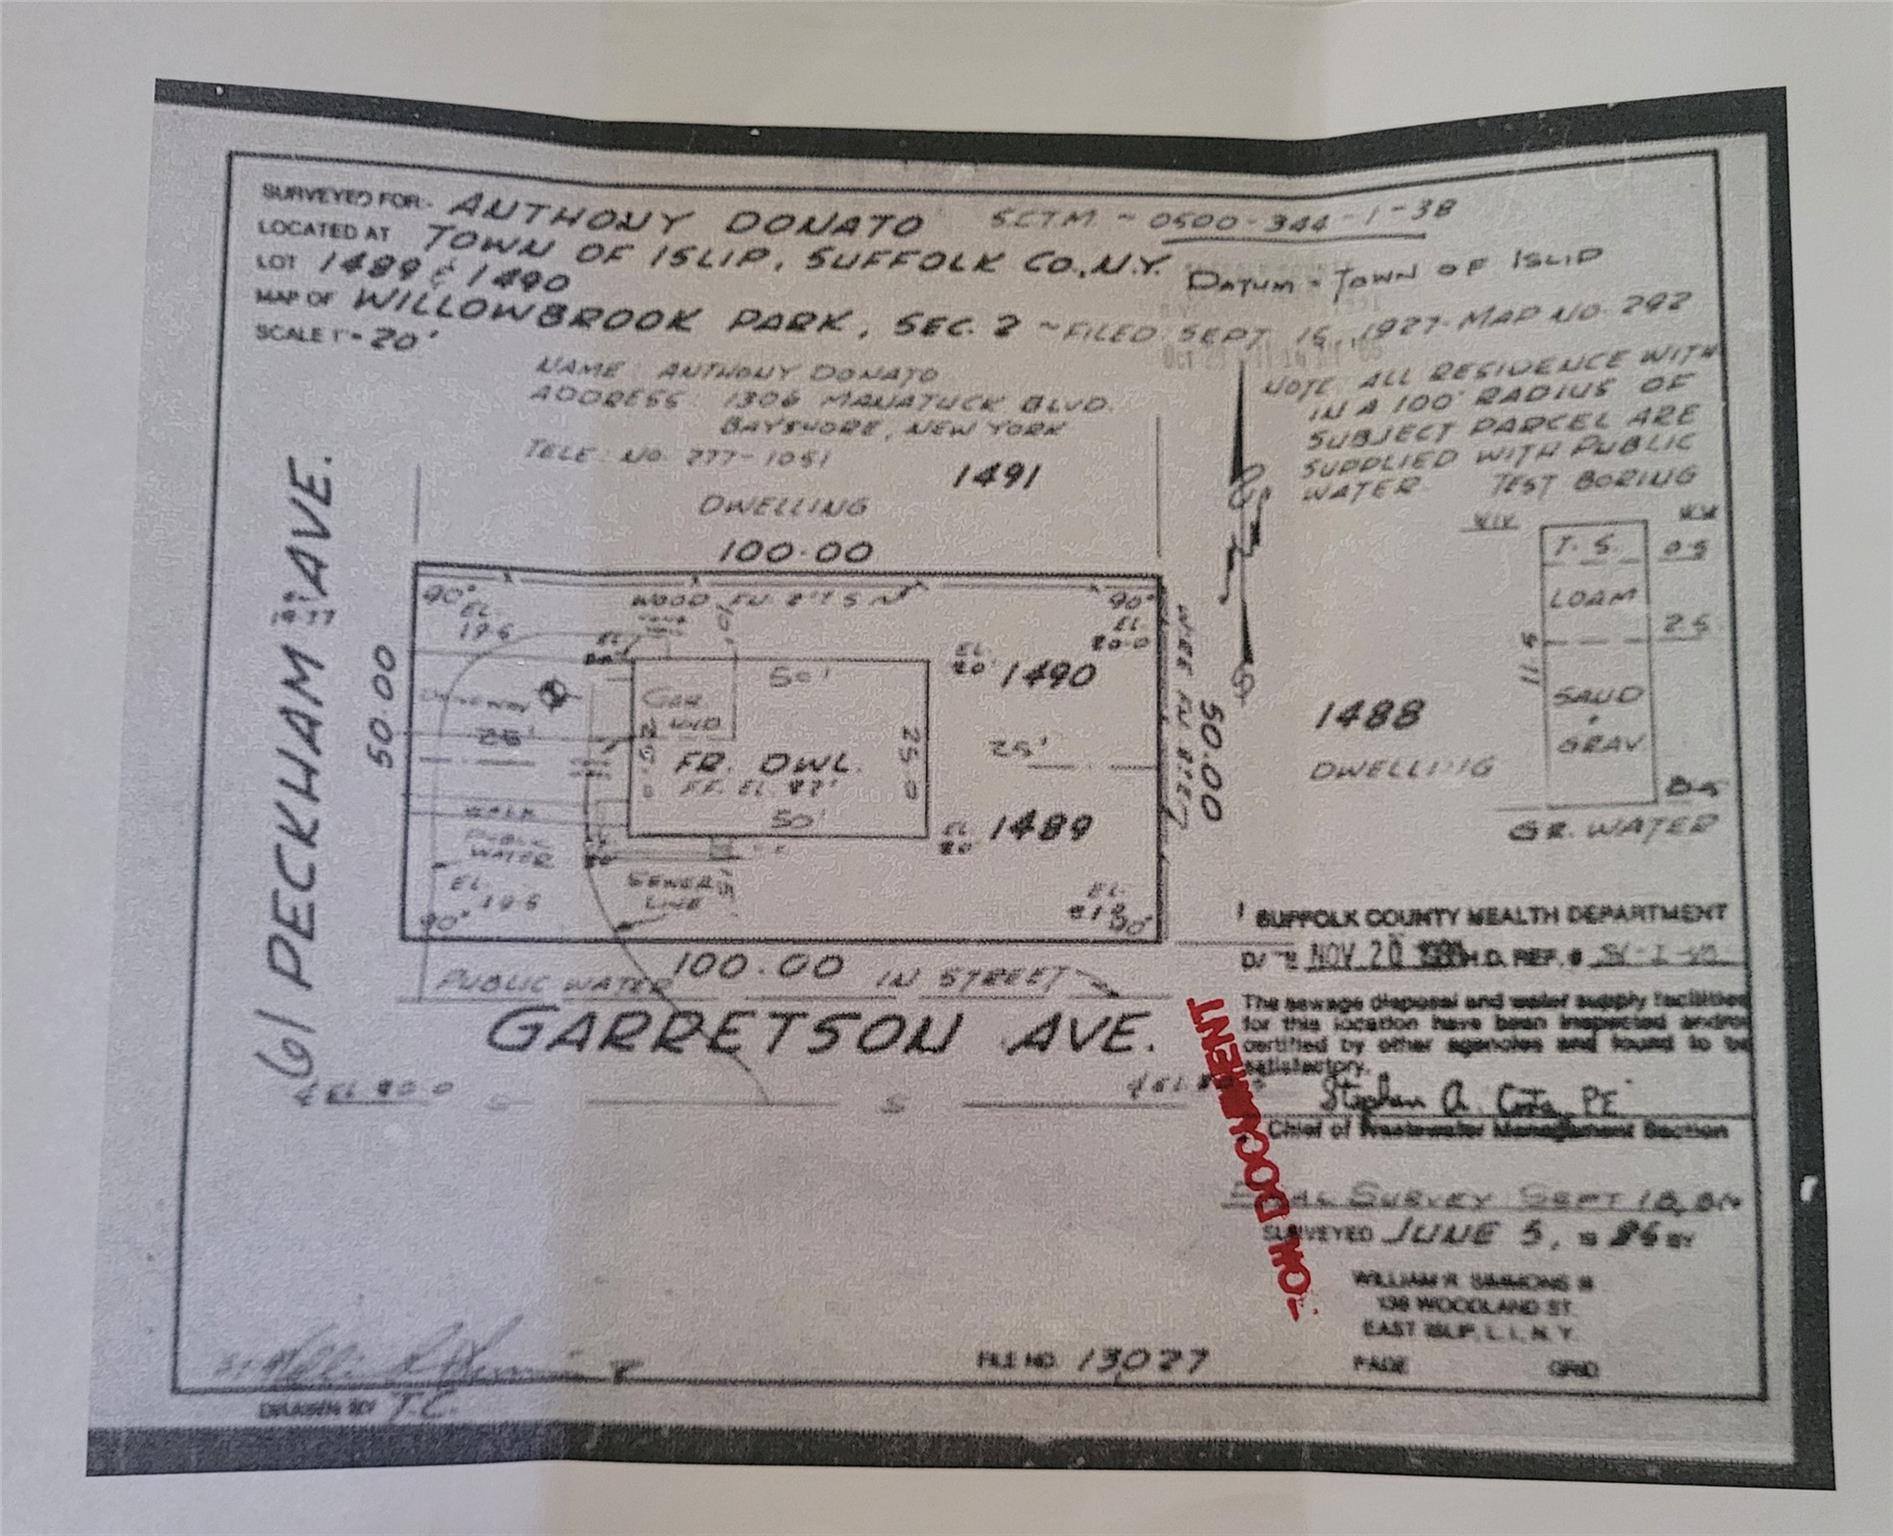 SURVEYED FOR:- ANTHONY DONATO
S.C.T.M. - 0500-344-1-38
LOCATED AT TOWN OF ISLIP, SUFFOLK CO., N.Y.
DATUM - TOWN OF ISLIP
LOT 1489 & 1490
MAP OF WILLOWBROOK PARK, SEC. 2 ~ FILED SEPT 1927 - MAP NO. 292
SCALE 1"= 20'
NAME: ANTHONY DONATO
ADDRESS: 1306 MANATUCK BLVD.
BAYSHORE, NEW YORK
TELE. NO. 277-1051
NOTE ALL RESIDENCE WITH
IN A 100' RADIUS OF
SUBJECT PARCEL ARE
SUPPLIED WITH PUBLIC
WATER.
TEST BORING
T.S. 0.5
LOAM
2.5
11.5
SAND
&
GRAV.
GR. WATER
1491
DWELLING
100.00
61 PECKHAM AVE.
50.00
90°
EL.
19.6
WOOD
90°
EL.
20.0
EL.
20'
1490
50'
GAR.
DRIVEWAY
25'
25.0
FR. DWL.
F.F. EL.
50'
25.0
25'
EL.
20
1489
WALK
PUBLIC
WATER
EL.
19.6
90°
SEWER
LINE
EL.
90°
50.00
1488
DWELLING
100.00
PUBLIC WATER IN STREET
GARRETSON AVE.
S S
SUFFOLK COUNTY HEALTH DEPARTMENT
DATE NOV 20 H.D. REF. #
The sewage disposal and water supply facilities
for this location have been inspected and/or
certified by other agencies and found to be
satisfactory.
Stephen A. Costa, PE
Chief of Wastewater Management Section
FINAL SURVEY SEPT 18,
SURVEYED JUNE 5, 1986 BY
WILLIAM R. SIMMONS III
138 WOODLAND ST.
EAST ISLIP, L. I., N. Y.
PAGE GRID
FILE NO. 13027
DRAWN BY T.C.
DOCUMENT